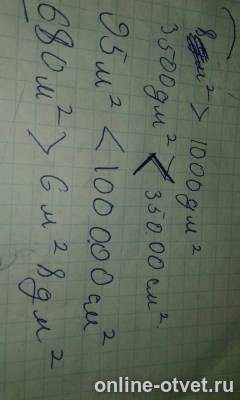 8 м² > 1000 дм²
3500 дм² < 35000 см².
95 м² < 100000 см²
680 м² > 6 м² 8 дм²
online-otvet.ru